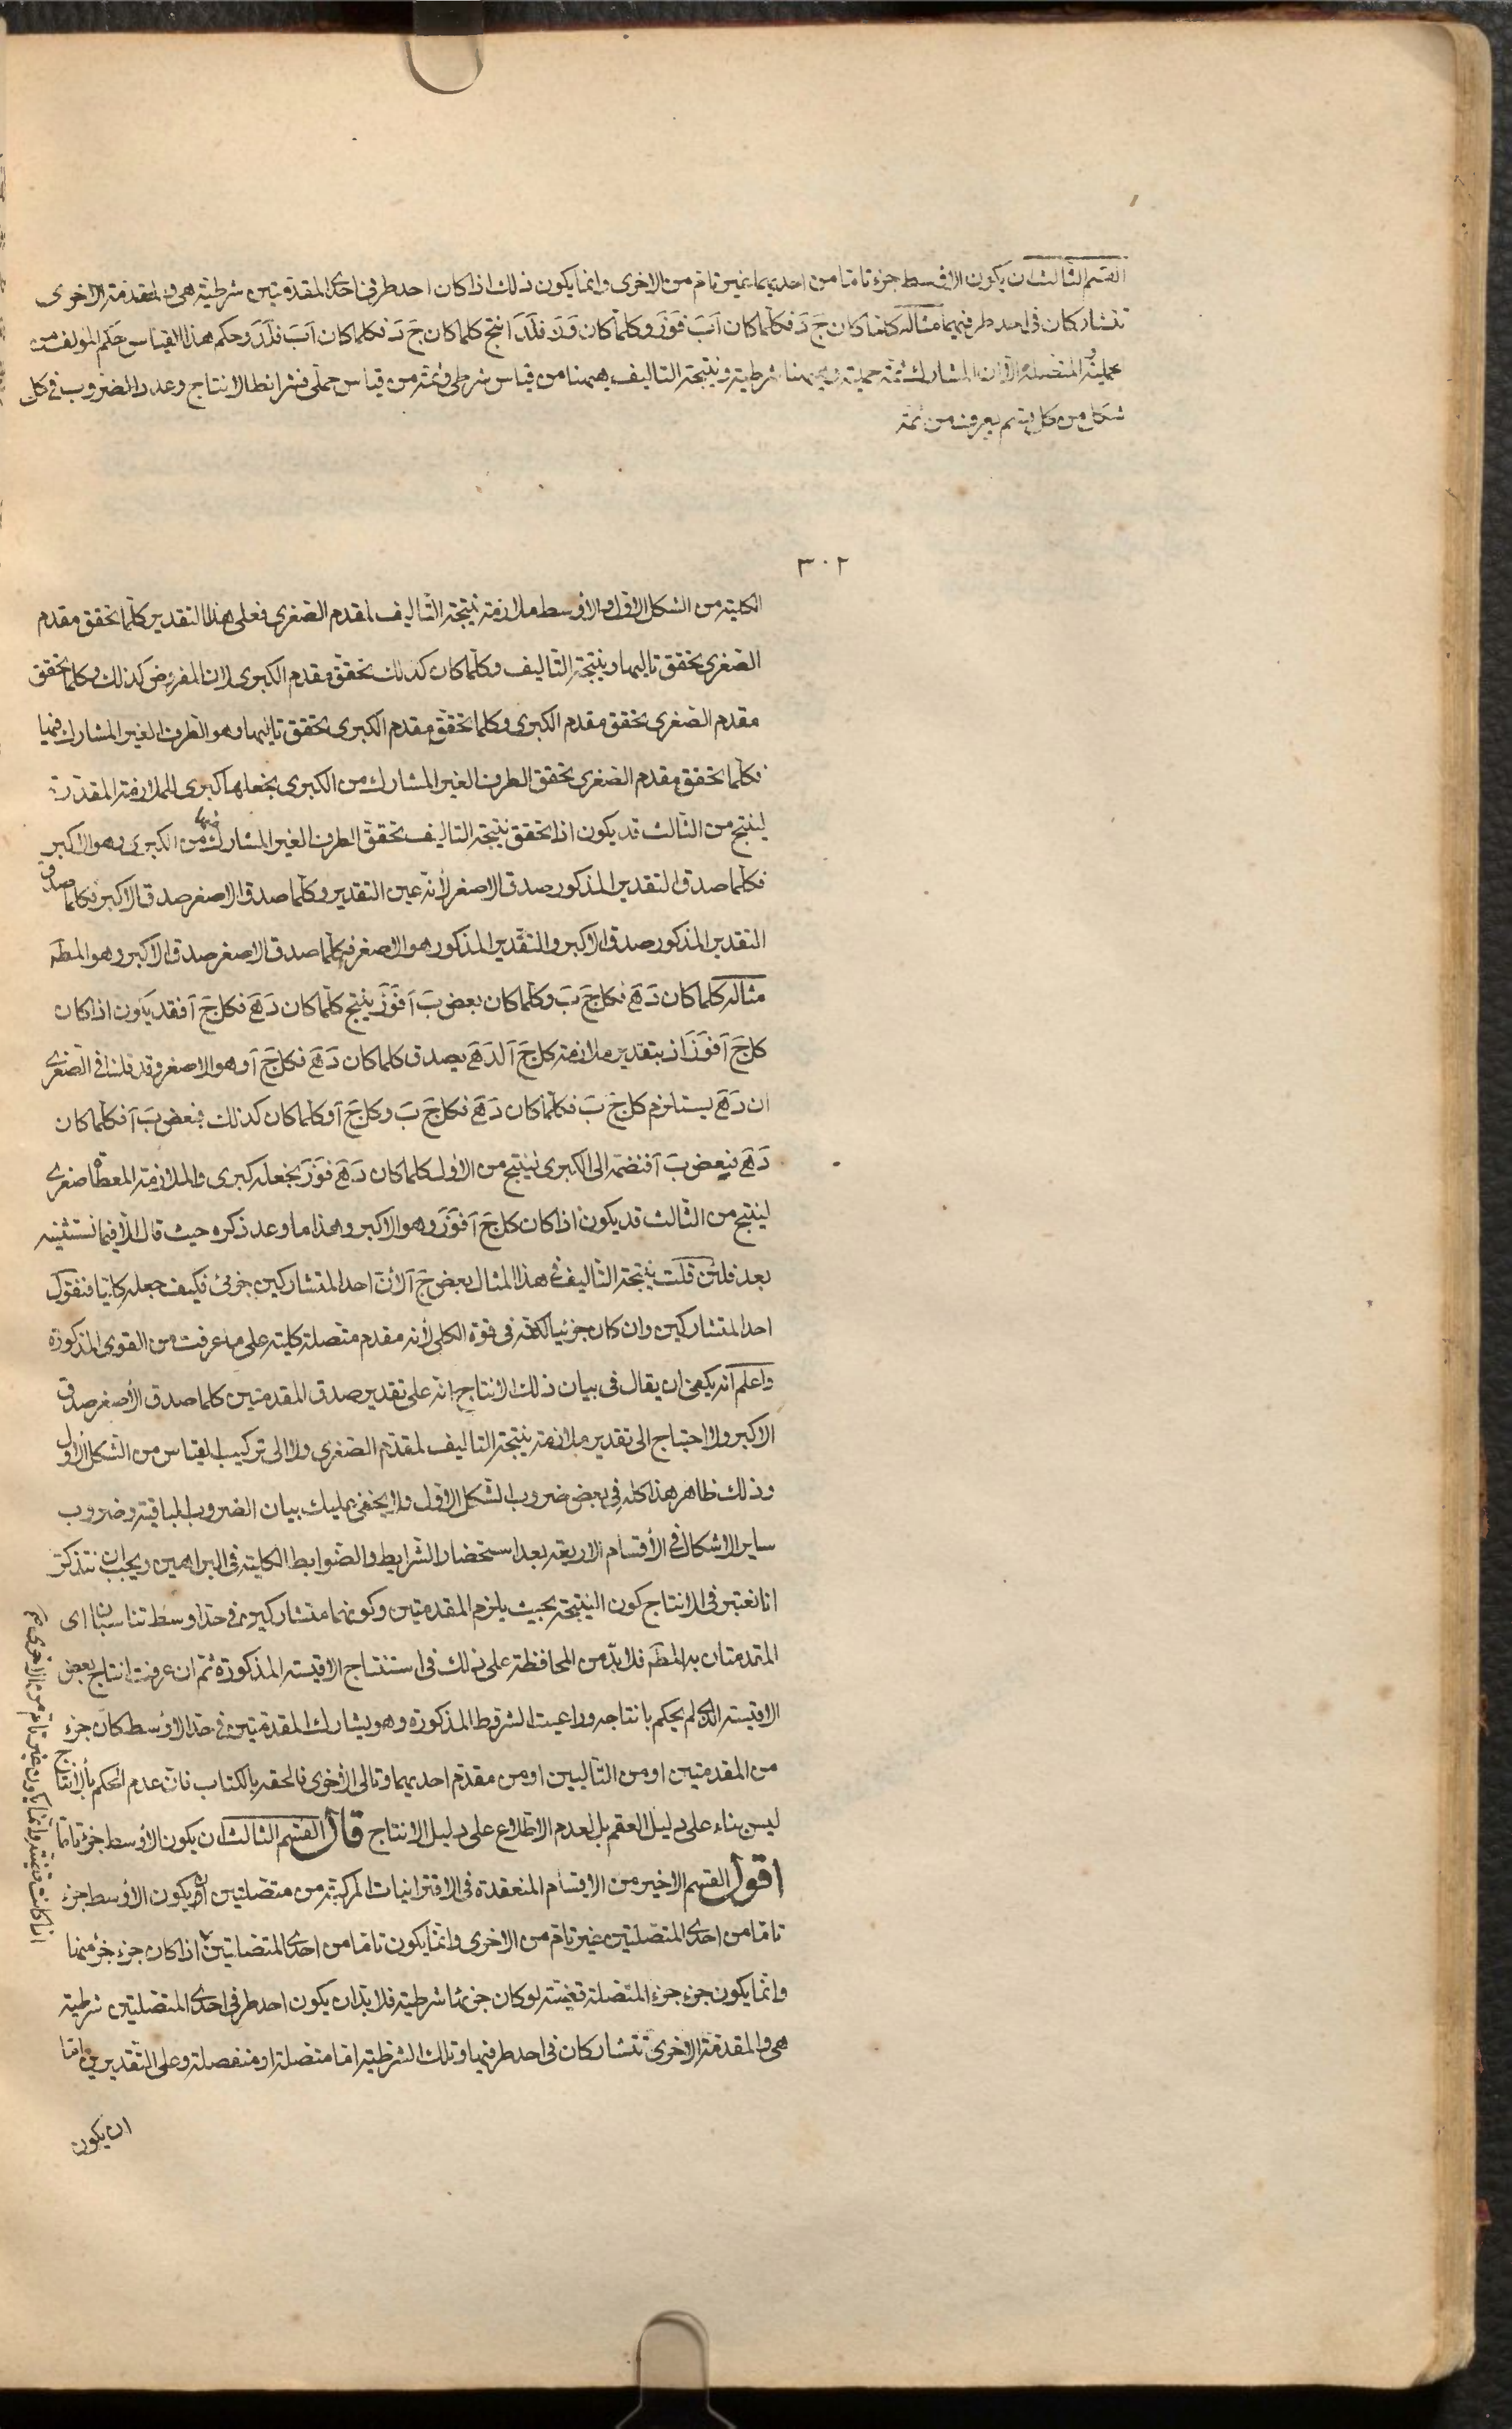 القسم الثالث ان يكون الاوسط جزءً تاما من احديهما غير تام من الاخرى وانما يكون ذلك اذا كان احد طرفى احدى المقدمتين شرطية هى والمقدمة الاخرى
تتشاركان فى احد طرفيهما مثاله كلما كان جَ دَ فكلما كان اَبَ فوَزَ وكلما كان وَزَ فلَدَ انتج كلما كان جَ دَ فكلما كان اَبَ فلَدَ وحكم هذا القياس حكم المؤلف من
حملية والمتصلة الا ان المشارك ثمة حملية وههنا شرطية ونتيجة التاليف ههنا من قياس شرطى وثمة من قياس حملى فشرائط الانتاج وعدد الضروب فى كل
شكل من كل قسم يعرف من ثمة
٣٠٢
الكلية من الشكل الاول والاوسط ملازمة نتيجة التاليف لمقدم الصغرى فعلى هذا التقدير كلما تحقق مقدم
الصغرى تحقق تاليها ونتيجة التاليف وكلما كان كذلك تحقق مقدم الكبرى لان المفروض كذلك وكلما تحقق
مقدم الصغرى تحقق مقدم الكبرى وكلما تحقق مقدم الكبرى تحقق تاليها وهو الطرف الغير المشارك فيها
فكلما تحقق مقدم الصغرى تحقق الطرف الغير المشارك من الكبرى بجعلها كبرى للملازمة المقدرة
لينتج من الثالث قد يكون اذا تحقق نتيجة التاليف تحقق الطرف الغير المشارك من الكبرى وهو الاكبر
فكلما صدق التقدير المذكور صدق الاصغر لأنه عين التقدير وكلما صدق الاصغر صدق الاكبر فكلما صدق
التقدير المذكور صدق الاكبر والتقدير المذكور هو الاصغر فكلما صدق الاصغر صدق الاكبر وهو المط
مثاله كلما كان دَهَ فكل جَ بَ وكلما كان بعض بَ آ فوَزَ ينتج كلما كان دَهَ فكل جَ آ فقد يكون اذا كان
كل جَ آ فوَزَ اذ بتقدير ملازمة كل جَ آ لدَهَ يصدق كلما كان دَهَ فكل جَ آ وهو الاصغر وقد قلنا فى الصغرى
ان دَهَ يستلزم كل جَ بَ فكلما كان دَهَ فكل جَ بَ وكل جَ آ وكلما كان كذلك فبعض بَ آ فكلما كان
دَهَ فبعض بَ آ فنضمه الى الكبرى لينتج من الاول كلما كان دَهَ فوَزَ يجعله كبرى والملازمة المعطاة صغرى
لينتج من الثالث قد يكون اذا كان كل جَ آ فوَزَ وهو الاكبر وهذا ما وعد ذكره حيث قال الا فيما نستثنيه
بعد فلئن قلت نتيجة التاليف فى هذا المثال بعض جَ آ لأن احد المتشاركين جزئى فكيف جعله كليا فنقول
احد المتشاركين وان كان جزئيا لكنه فى قوة الكلى لأنه مقدم متصلة كلية على ما عرفت من القوى المذكورة
واعلم انه يكفى ان يقال فى بيان ذلك الانتاج انه على تقدير صدق المقدمتين كلما صدق الأصغر صدق
الاكبر ولا احتياج الى تقدير ملازمة نتيجة التاليف لمقدم الصغرى ولا الى تركيب القياس من الشكل الاول
وذلك ظاهر هذا كله فى بعض ضروب الشكل الاول ولا يخفى عليك بيان الضروب الباقية وضروب
ساير الاشكال فى الأقسام الاربعة بعد استحضار الشرايط والضوابط الكلية فى البراهين ويجب ان نتذكر
انا نعتبر فى الانتاج كون النتيجة بحيث يلزم المقدمتين وكونهما متشاركين فى حد اوسط تناسبان اى
المقدمتان به المط فلا بد من المحافظة على ذلك فى استنتاج الاقيسة المذكورة ثم ان عرفت انتاج بعض
الاقيسة الذى لم يحكم بانتاجه وراعيت الشروط المذكورة وهو يشارك المقدمتين فى حد الاوسط كان جزء
من المقدمتين او من التاليين او من مقدم احديهما وتالى الأخرى فالحقه بالكتاب فان عدم الحكم بالانتاج
ليس بناء على دليل العقم بل لعدم الاطلاع على دليل الانتاج قال القسم الثالث ان يكون الاوسط جزءً تاما
اقول القسم الاخير من الاقسام المنعقدة فى الاقترانيات المركبة من متصلتين ان يكون الاوسط جزء
تاما من احدى المتصلتين غير تام من الاخرى وانما يكون تاما من احدى المتصلتين اذا كان جزء جزء منها
وانما يكون جزء جزء المتصلة قضية لو كان جزئها شرطية فلا بد ان يكون احد طرفى احدى المتصلتين شرطية
هى والمقدمة الاخرى تتشاركان فى احد طرفيها وتلك الشرطية اما متصلة او منفصلة وعلى التقديرين اما
ان يكون
غير تام من الاخرى وانما يكون
اذا كانت قضية